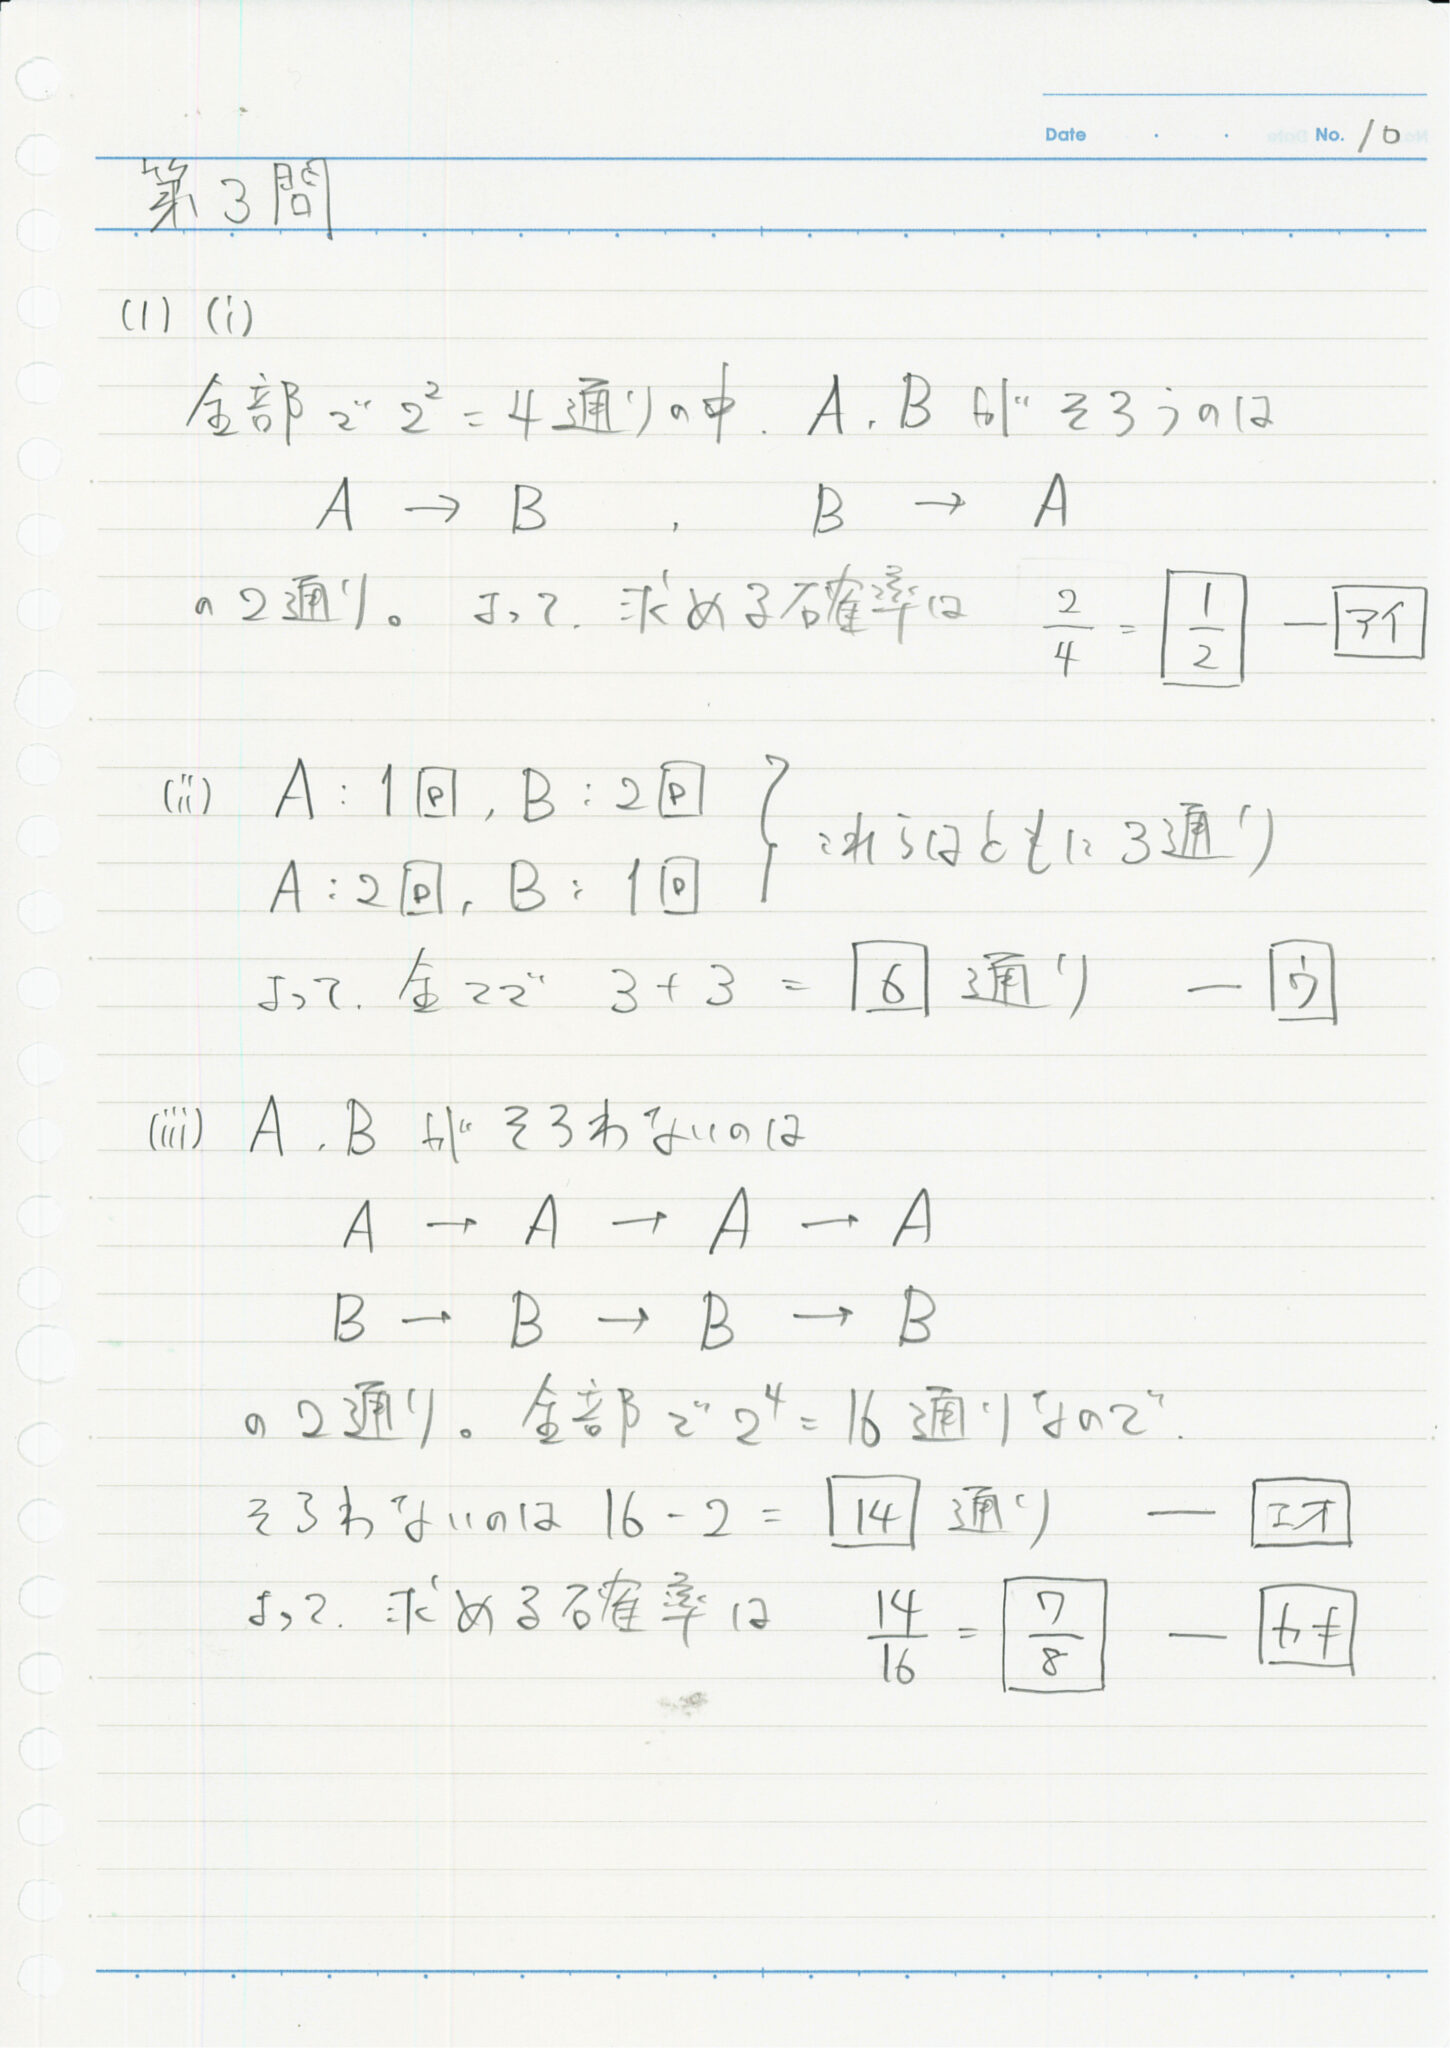 Date ・ ・ No. 10
第3問
(1) (i)
全部で 2² = 4通りの中. A, B がそろうのは
A → B , B → A
の2通り。よって, 求める確率は 2/4 = 1/2 — アイ
(ii) A : 1回, B : 2回
A : 2回, B : 1回
これらはともに 3通り
よって, 全てで 3 + 3 = 6 通り — ウ
(iii) A, B がそろわないのは
A → A → A → A
B → B → B → B
の2通り。全部で 2⁴ = 16 通りなので.
そろわないのは 16 - 2 = 14 通り — エオ
よって, 求める確率は 14/16 = 7/8 — カキ